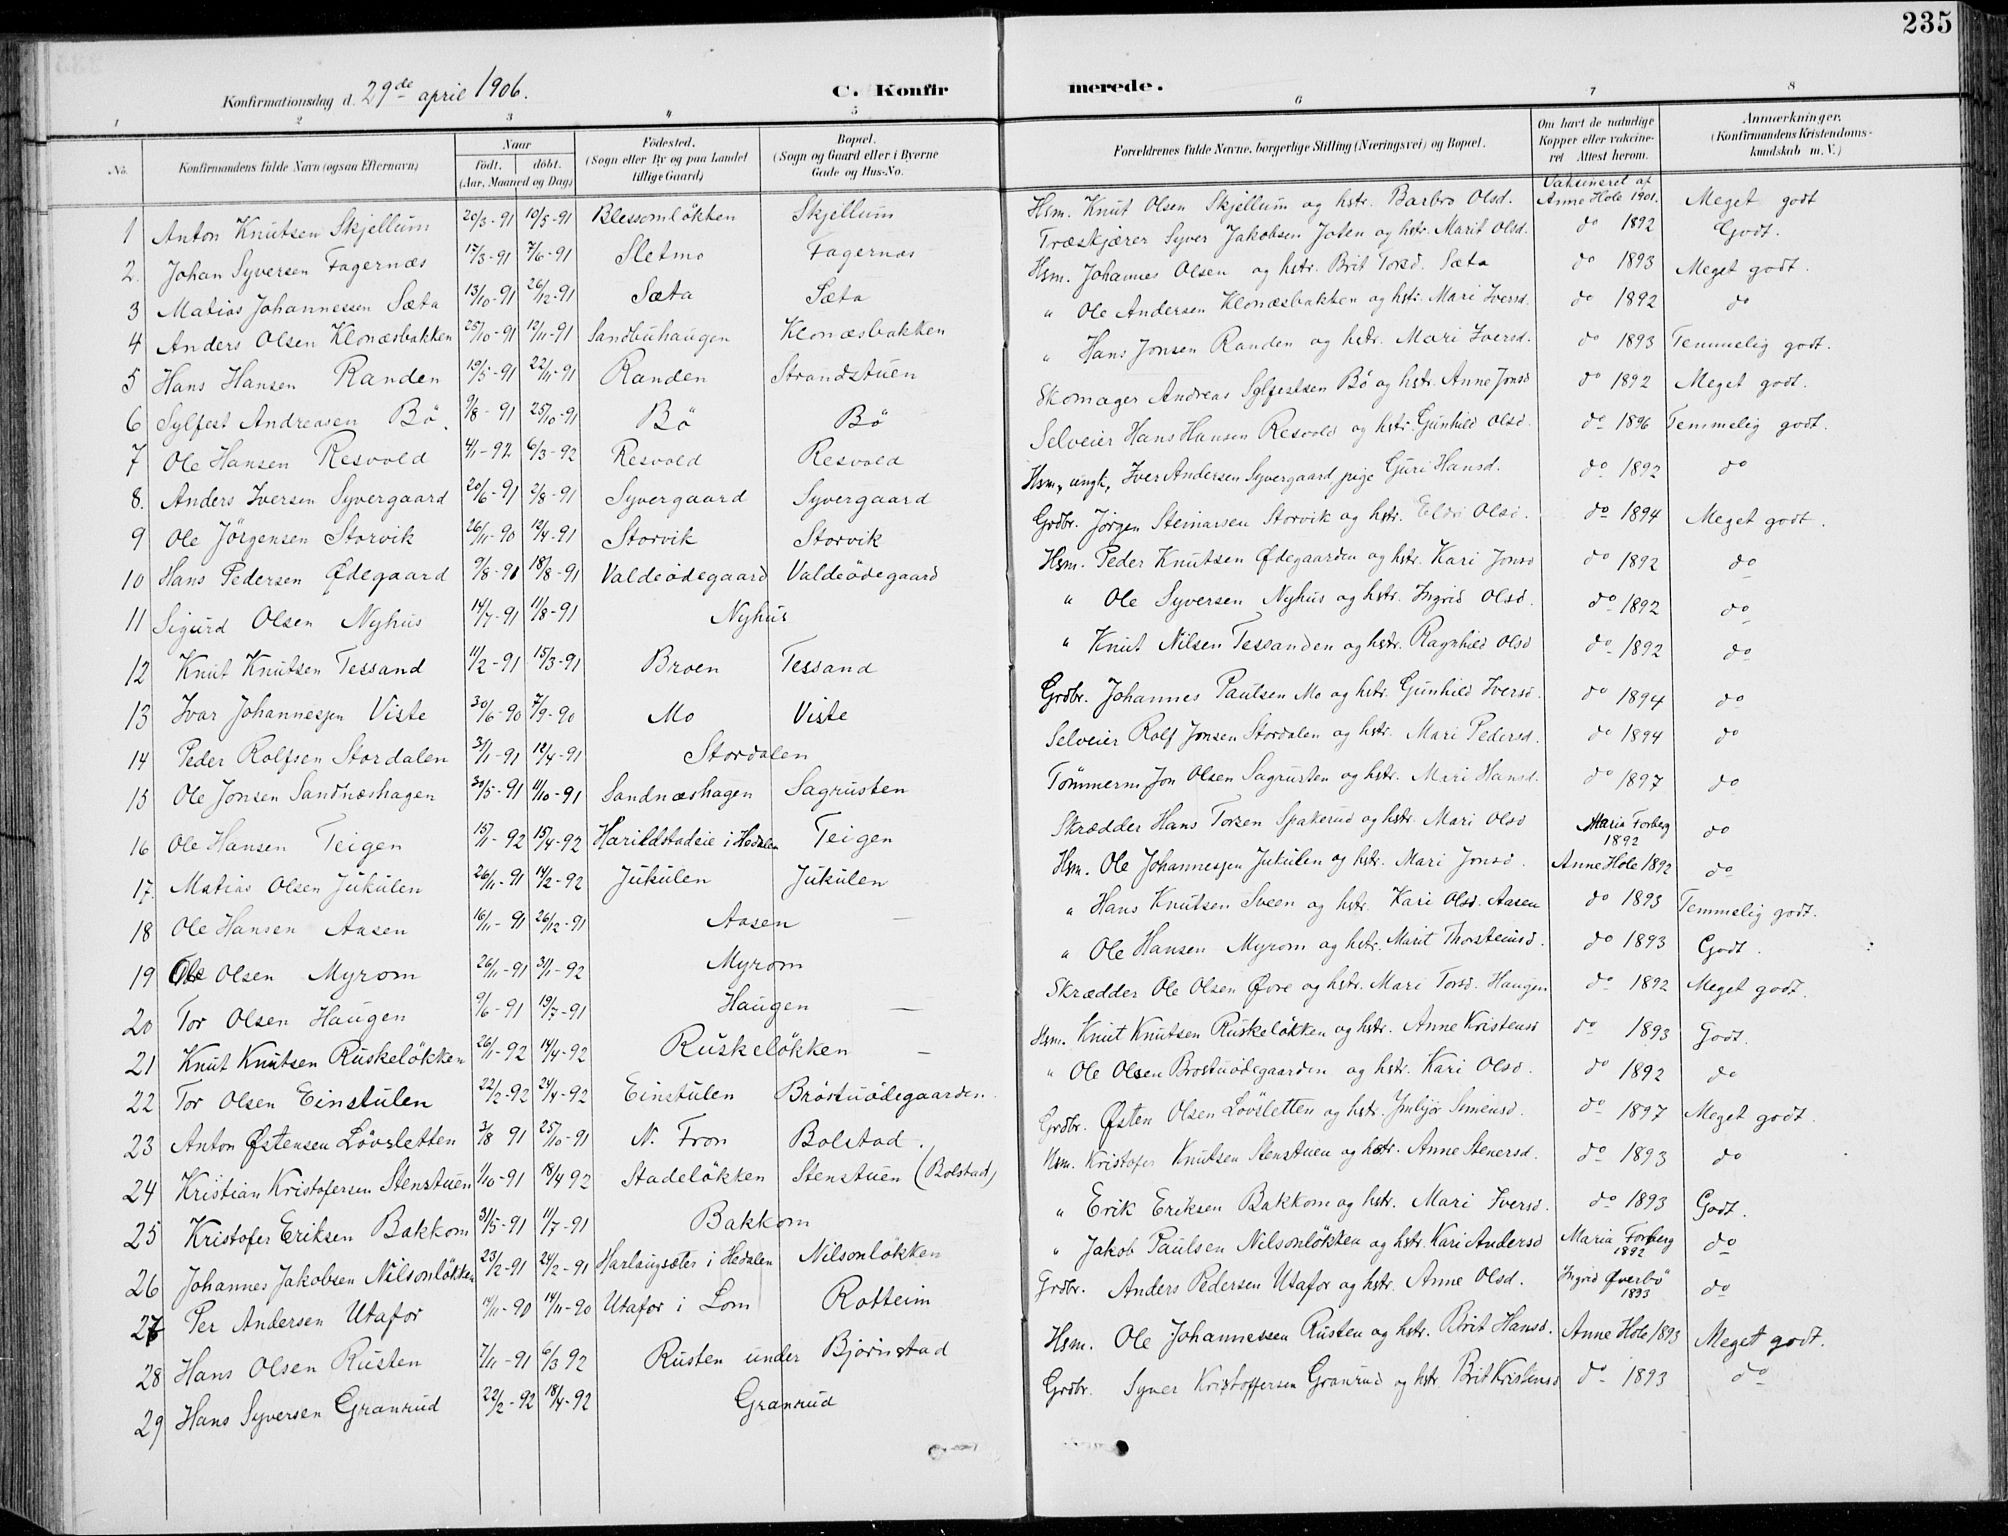 235
Konfirmationsdag d. 29de april 1906. C. Konfirmerede.
1 2 3 4 5 6 7 8
No. Konfirmandens fulde Navn (ogsaa Efternavn) Naar født, døbt. (Aar, Maaned og Dag) Fødested. (Sogn eller By og paa Landet tillige Gaard) Bopæl. (Sogn og Gaard eller i Byerne Gade og Hus-No. Forældrenes fulde Navne, borgerlige Stilling (Næringsvei) og Bopæl. Om havt de naturlige Kopper eller vakcineret Attest herom. Anmærkninger. (Konfirmandens Kristendomskundskab m. V.)
1 Anton Knutsen Skjellum 20/3-91 10/5-91 Blessomløkken Skjellum Hsm. Knut Olsen Skjellum og hstr. Barbro Olsd. Vaksineret af Anne Hole 1901. Meget godt
2. Johan Syversen Fagernæs 17/3-91 7/6-91 Sletmo Fagernæs Træskjærer Syver Jakobsen og hstr. Marit Olsd. do 1892 Godt.
3 Matias Johannessen Sæta 13/10-91 26/12-91 Sæta Sæta Hsm. Johannes Olsen og hstr. Brit Torsd. Sæta do 1893 Meget godt.
4 Anders Olsen Klonæsbakken 25/10-91 12/11-91 Sandbuhaugen Klonæsbakken " Ole Andersen Klonæsbakken og hstr. Mari Iversd. do 1892 do
5 Hans Hansen Randen 19/5-91 22/11-91 Randen Strandstuen " Hans Jonsen Randen og hstr. Mari Iversd. do 1893 Temmelig godt.
6 Sylfest Andreasen Bö. 9/8-91 25/10-91 Bö Bö Skomager Andreas Sylfestsen Bö og hstr. Anne Jonsd do 1892 Meget godt.
7 Ole Hansen Resvold 4/1-92 6/3-92 Resvold Resvold Selveier Hans Hansen Resvold og hstr. Gunhild Olsd. do 1896 Temmelig godt.
8. Anders Iversen Syvergaard 20/6-91 2/8-91 Syvergaard Syvergaard Hsm., ungk., Iver Andersen Syvergaard pige Guri Hansd. do 1892 do
9 Ole Jörgensen Storvik 26/11-90 12/4-91 Storvik Storvik Grdbr. Jörgen Steinarsen Storvik og hstr. Eldri Olsd. do 1894 Meget godt.
10 Hans Pedersen Ödegaard 9/8-91 18/8-91 Valdeödegaard Valdeödegaard Hsm. Peder Knutsen Ödegaarden og hstr. Kari Jonsd do 1892 do
11 Sigurd Olsen Nyhus 14/7-91 11/8-91 Nyhus " Ole Syversen Nyhus og hstr. Ingrid Olsd. do 1892 do
12 Knut Knutsen Tessand 11/2-91 15/3-91 Broen Tessand " Knut Nilsen Tessanden og hstr. Ragnhild Olsd do 1892 do
13 Ivar Johannessen Viste 30/6-90 7/9-90 Mo Viste Grdbr. Johannes Paulsen Mo og hstr. Gunhild Iversd. do 1894 do
14 Peder Rolfsen Stordalen 3/1-91 12/4-91 Stordalen Selveier Rolf Jonsen Stordalen og hstr. Mari Pedersd. do 1894 do
15 Ole Jonsen Sandnæshagen 30/5-91 11/10-91 Sandnæshagen Sagrusten Tömmerm Jon Olsen Sagrusten og hstr. Mari Hansd. do 1897 do
16 Ole Hansen Teigen 15/1-92 15/4-92 Harildstadeie i Hedalen Teigen Skrædder Hans Torsen Spakerud og hstr. Mari Olsd Maria Forberg 1892 do
17. Matias Olsen Jukulen 26/11-91 14/2-92 Jukulen Jukulen Hsm. Ole Johannessen Jukulen og hstr. Mari Jonsd. Anne Hole 1892 do
18 Ole Hansen Aasen 16/11-91 26/12-91 Aasen — " Hans Knutsen Sveen og hstr. Kari Olsd. Aasen do 1893 Temmelig godt.
19 Ole Olsen Myrom 26/11-91 3/1-92 Myrom " Ole Hansen Myrom og hstr. Marit Thorsteinsd. do 1893 Godt.
20 Tor Olsen Haugen 9/6-91 19/7-91 Haugen — Skrædder Ole Olsen Övre og hstr. Mari Torsd. Haugen do 1892 Meget godt.
21 Knut Knutsen Ruskelökken 26/1-92 14/4-92 Ruskelökken — Hsm. Knut Knutsen Ruskelökken og hstr. Anne Kristensd do 1893 Godt.
22 Tor Olsen Einstulen 22/2-92 24/4-92 Einstulen Bröstuödegaarden. " Ole Olsen Brostuödegaarden og hstr. Kari Olsd. do 1892 do
23 Anton Östensen Lövsletten 3/8 91 25/10-91 N. Fron Bolstad. Grdbr. Östen Olsen Lövsletten og hstr. Imbjör Simensd. do 1897 Meget godt.
24 Kristian Kristofersen Stenstuen 1/10-91 18/4 92 Stadelökken Stenstuen (Bolstad) Hsm. Kristofer Knutsen Stenstuen og hstr. Anne Stenersd. do 1893 do
25 Kristofer Eriksen Bakkom 31/5-91 11/7-91 Bakkom " Erik Eriksen Bakkom og hstr. Mari Iversd. do 1893 Godt.
26 Johannes Jakobsen Nilsonlökken 23/2-91 24/2-91 Harlaugsæter i Hedalen Nilsonlökken " Jakob Paulsen Nilsonlökken og hstr. Kari Andersd Maria Forberg 1892 do
27 Per Andersen Utafor 14/11-90 14/11-90 Utafor i Lom Rotteim Grdbr. Anders Pedersen Utafor og hstr. Anne Olsd. Ingrid Överbö 1893 do
28 Hans Olsen Rusten 7/11-91 6/3 92 Rusten under Bjørnstad Hsm. Ole Johannessen Rusten og hstr. Brit Hansd. Anne Hole 1893 Meget godt.
29 Hans Syversen Granrud 22/2-92 18/4-92 Granrud Grdbr. Syver Kristoffersen Granrud og hstr Brit Kristensd do 1893 do